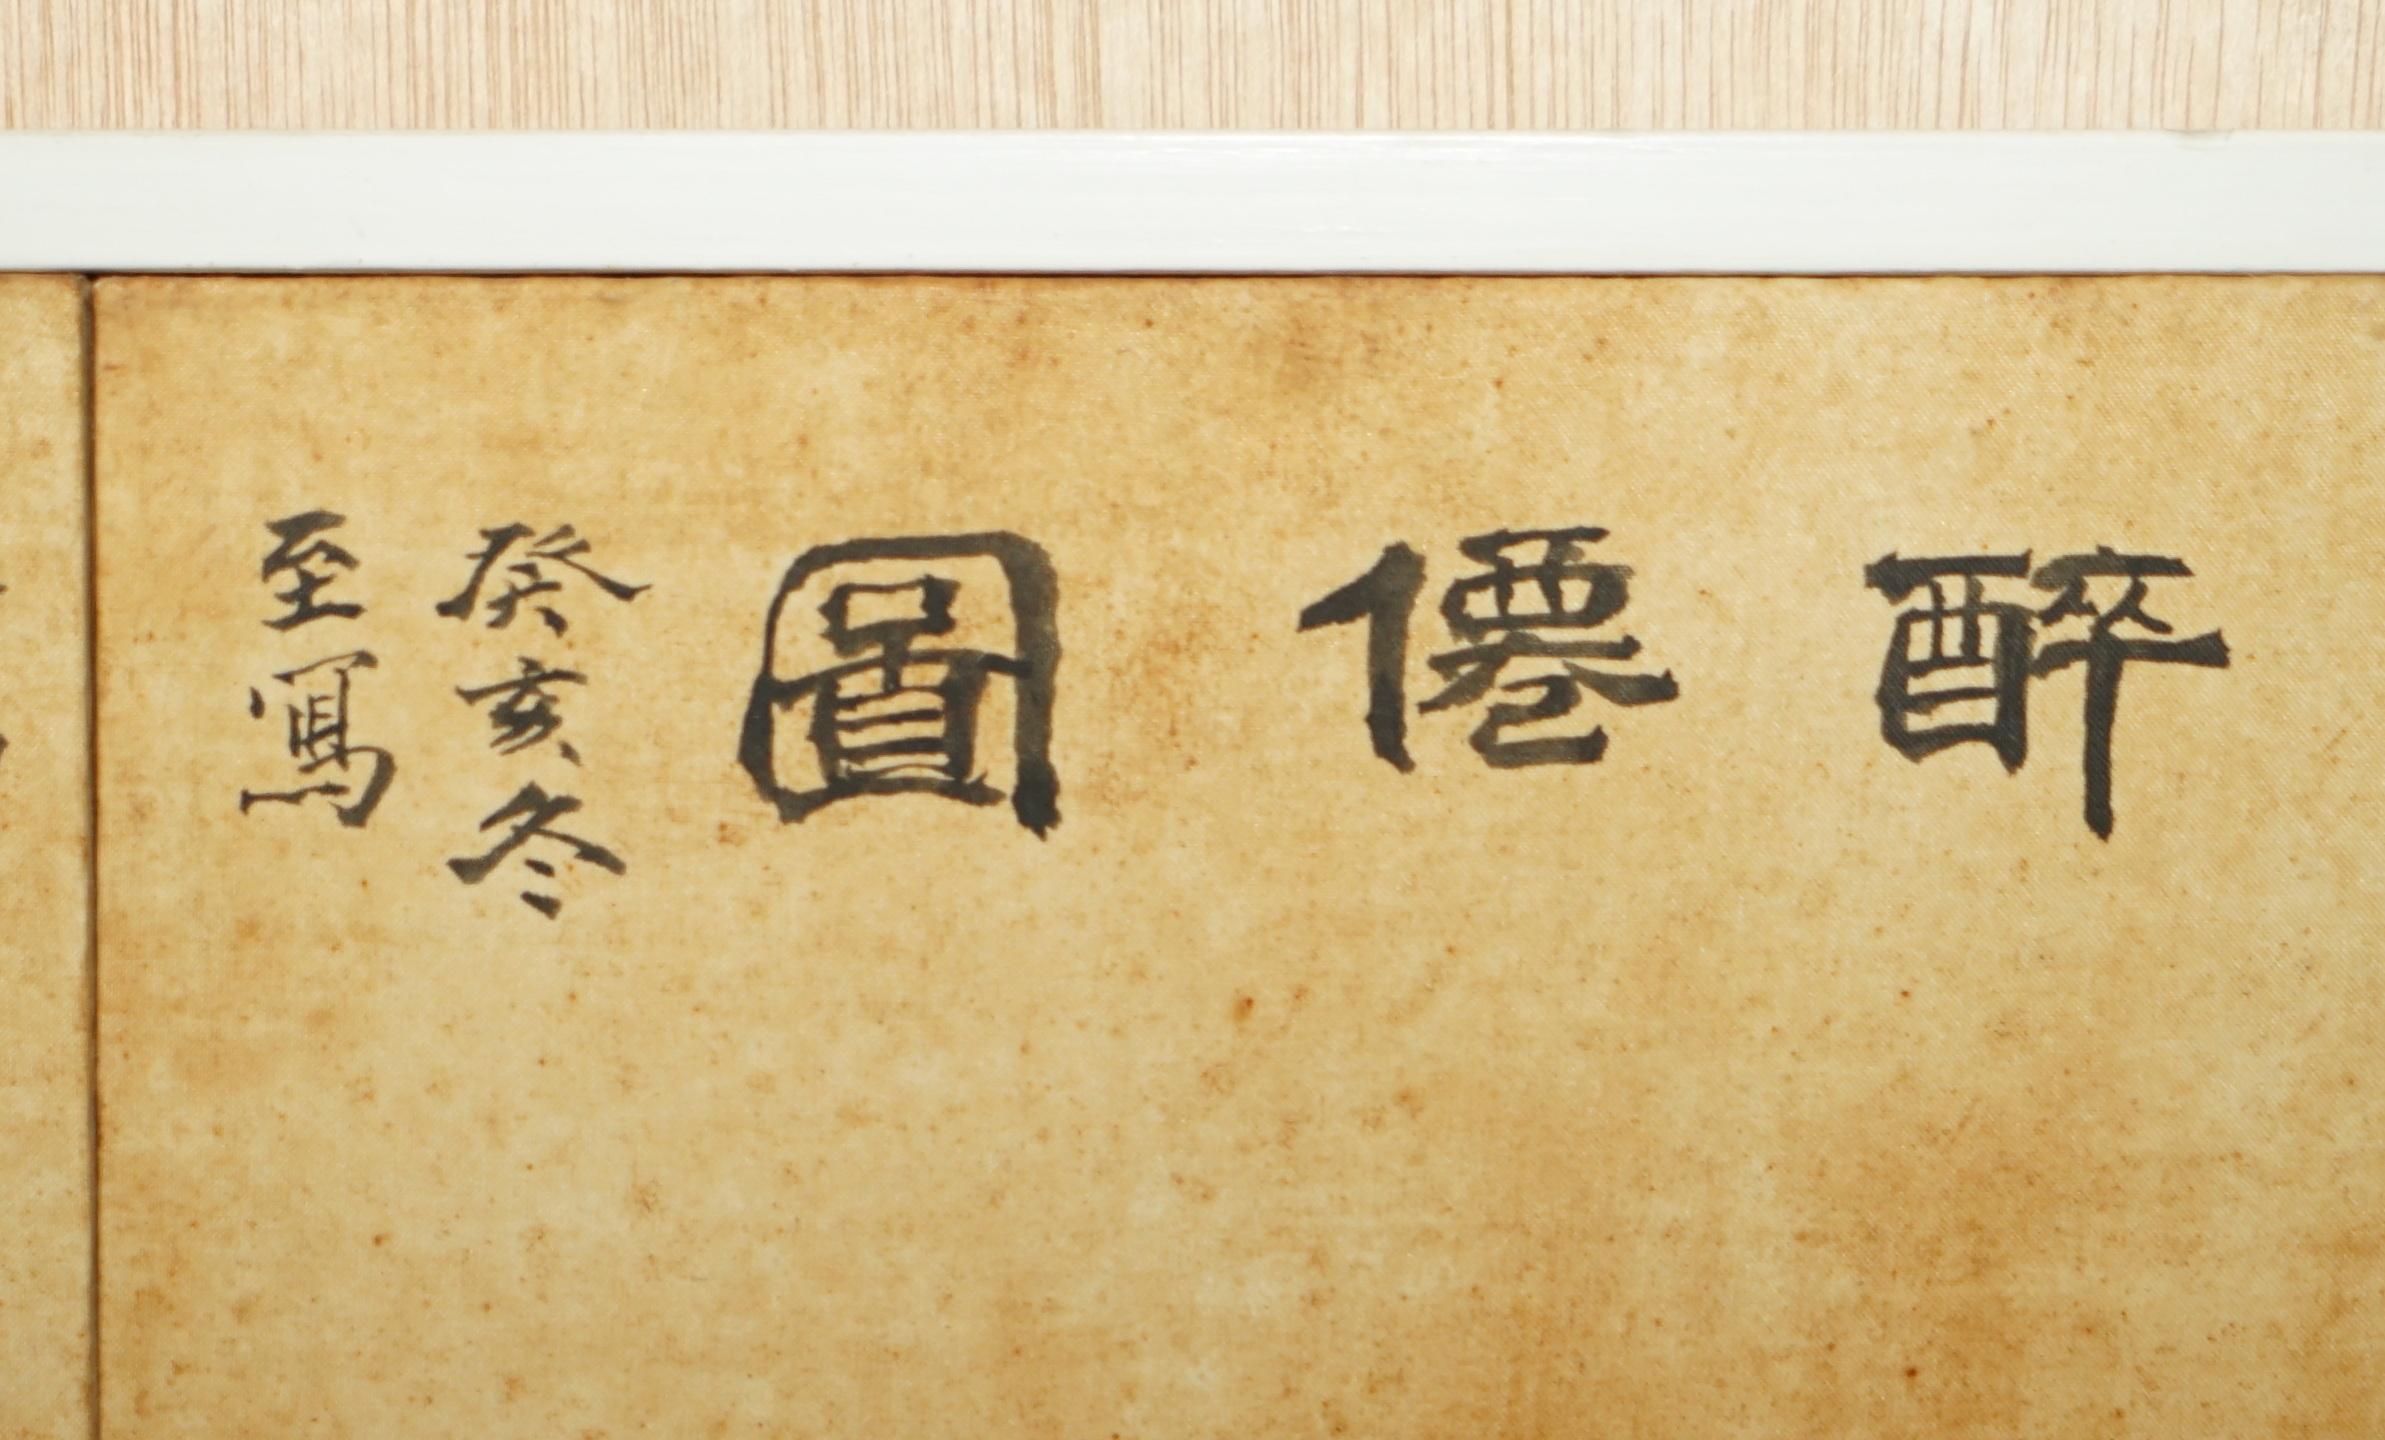 醉僊圖
癸亥冬
至寫